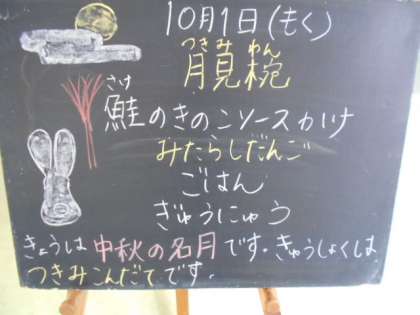 10月1日(もく)
つきみ わん
月見椀
さけ
鮭のきのこソースかけ
みたらしだんご
ごはん
ぎゅうにゅう
きょうは中秋の名月です。きゅうしょくは
つきみこんだてです。